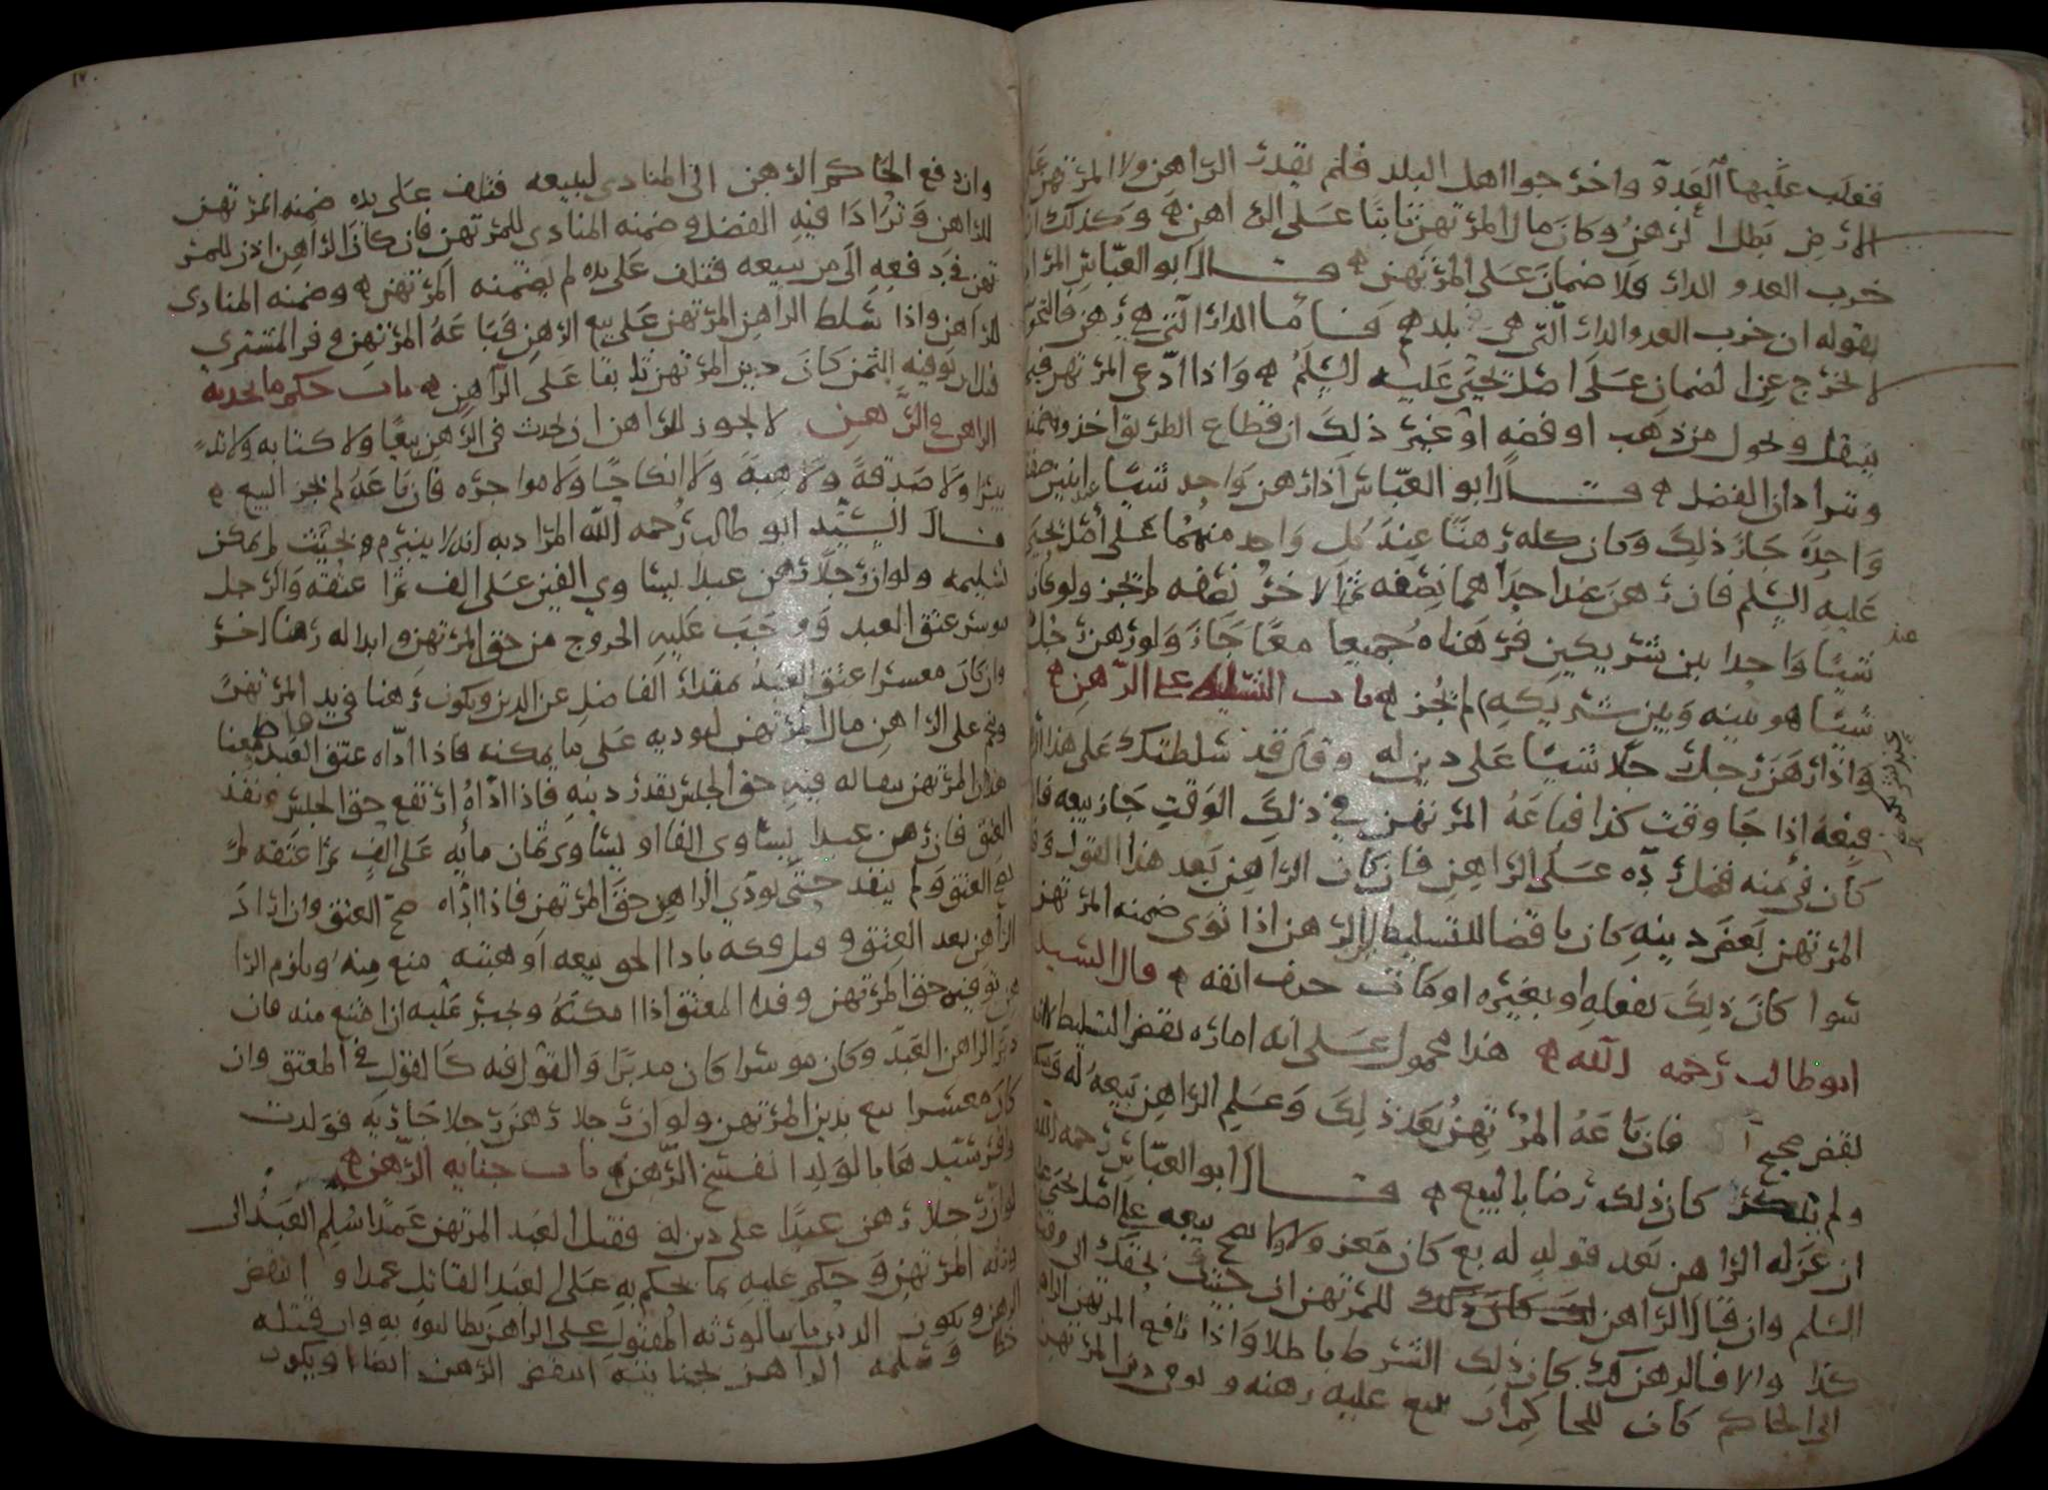 فغلب عليها العدو واخرجوا اهل البلد فلم يقدر الراهن ولا المرتهن على
الارض بطل الرهن وكان مال المرتهن ثابتا على الراهن وكذلك ان
خرب العدو الدار ولا ضمان على المرتهن قال ابو العباس المراد
بقوله ان خرب العدو الدار التي هي بلدهم فاما الدار التي هي رهن فالتخريب
لا يخرج عن الضمان على اصل يحيى عليه السلم واذا ادعى المرتهن فيما
ينقل ويحول من ذهب او فضة او غير ذلك ان قطاع الطريق اخذوه ضمنه
وترادان الفضل قال ابو العباس اذا رهن واحد شيئا عند اثنين صفقة
واحدة جاز ذلك وكان كله رهنا عند كل واحد منهما على اصل يحيى
عليه السلم فان رهن عند احدهما نصفه ثم الاخر نصفه لم يجز ولو كان
شيئا واحدا بين شريكين فرهناه جميعا معا جاز ولو رهن رجل
شيئا هو بينه وبين شريكه لم يجز باب التسليط على الرهن
واذا رهن رجل رجلا شيئا على دين له وقال قد سلطتك على هذا الرهن
فبعه اذا جا وقت كذا فباعه المرتهن في ذلك الوقت جاز بيعه فان
كان في ثمنه فضل رده على الراهن فان كان الراهن بعد هذا القول وفى
المرتهن بعض دينه كان ناقضا للتسليط الرهن اذا توى ضمنه المرتهن
سوا كان ذلك بفعله او بغيره او مات حتف انفه قال السيد
ابو طالب رحمه الله هذا محمول على انه اماره نقض التسليط لانه
نقض صحيح فان باعه المرتهن بعد ذلك وعلم الراهن بيعه له وسكت
ولم ينكر كان ذلك رضا بالبيع قال ابو العباس رحمه الله
ان عزله الراهن بعد قوله له بع كان معزولا ولا يصح بيعه على اصل يحيى عليه
السلم وان قال الراهن للمرتهن ان جئتك بحقك الى وقت
كذا والا فالرهن لك كان ذلك الشرط باطلا واذا رافع المرتهن الراهن
الى الحاكم كان للحاكم ان يبيع عليه رهنه ويوفي دين المرتهن
وان دفع الحاكم الرهن الى المنادي ليبيعه فتلف على يده ضمنه المرتهن
للراهن وترادا فيه الفضل وضمنه المنادي للمرتهن فان كان الراهن اذن للمر
تهن في دفعه الى من يبيعه فتلف على يده لم يضمنه المرتهن وضمنه المنادي
للراهن واذا سلط الراهن المرتهن على بيع الرهن فباعه المرتهن وفر المشتري
قبل ان يوفيه الثمن كان دين المرتهن ثابتا على الراهن باب حكم ما يحدثه
الراهن في الرهن لا يجوز للراهن ان يحدث في الرهن بيعا ولا كتابة ولا تد
بيرا ولا صدقة ولا هبة ولا انكاحا ولا مواجره فان باعه لم يجز البيع
قال السيد ابو طالب رحمه الله المراد به انه لا ينبرم بحيث لم يمكن
تسليمه ولو ان رجلا رهن عبدا يساوي الفين على الف ثم اعتقه والرجل
موسر عتق العبد ووجب عليه الخروج من حق المرتهن وابداله رهنا اخر
وان كان معسرا عتق العبد مقدار الفاضل عن الدين ويكون رهنا في يد المرتهن
ونجم على الراهن مال المرتهن ليوديه على ما يمكنه فاذا اداه عتق العبد معنا
هذا ان المرتهن يبقا له فيه حق الحبس بقدر دينه فاذا اداه ارتفع حق الحبس ونفذ
العتق فان رهن عبدا يساوي الفا او يساوي ثمان مايه على الف ثم اعتقه لم
العتق ولم ينفذ حتى يودي الراهن حق المرتهن فاذا اداه صح العتق وان اراد
الراهن بعد العتق وقبل فكه بادا الحق بيعه او هبته منع منه ويلزم الرا
هن توفيه حق المرتهن وفدا المعتق اذا امكنه ويجبر عليه ان امتنع منه فان
دبر الراهن العبد وكان موسرا كان مدبرا والقول فيه كالقول في المعتق وان
كان معسرا بيع بدين المرتهن ولو ان رجلا رهن رجلا جاريه فولدت
واقر سيدها بالولد انفسخ الرهن باب جنايه الرهن
لو ان رجلا رهن عبدا على دين له فقتل العبد المرتهن عمدا اسلم العبد الى
ورثه المرتهن وحكم عليه بما يحكم به على العبد القاتل عمدا وانتقض
الرهن ويكون الدين ثابتا لورثه المقتول على الراهن يطالبوه به وان قتله
خطا وسلمه الراهن بجنايته انتقض الرهن ايضا ويكون